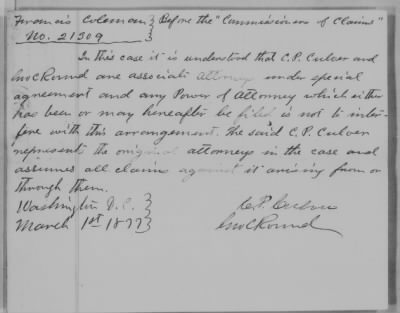 Francis Coleman } Before the "Commissioners of Claims"
No. 21309
In this case it is understood that C.P. Culver and
Geo C Round are associate Attorney under special
agreement and any Power of Attorney which either
has been or may hereafter be filed is not to inter-
fere with this arrangement. The said C.P. Culver
represents the original attorneys in the case and
assumes all claims against it arising from or
through them.
Washington D.C. }
March 1st 1877 }
C.P. Culver
Geo C Round